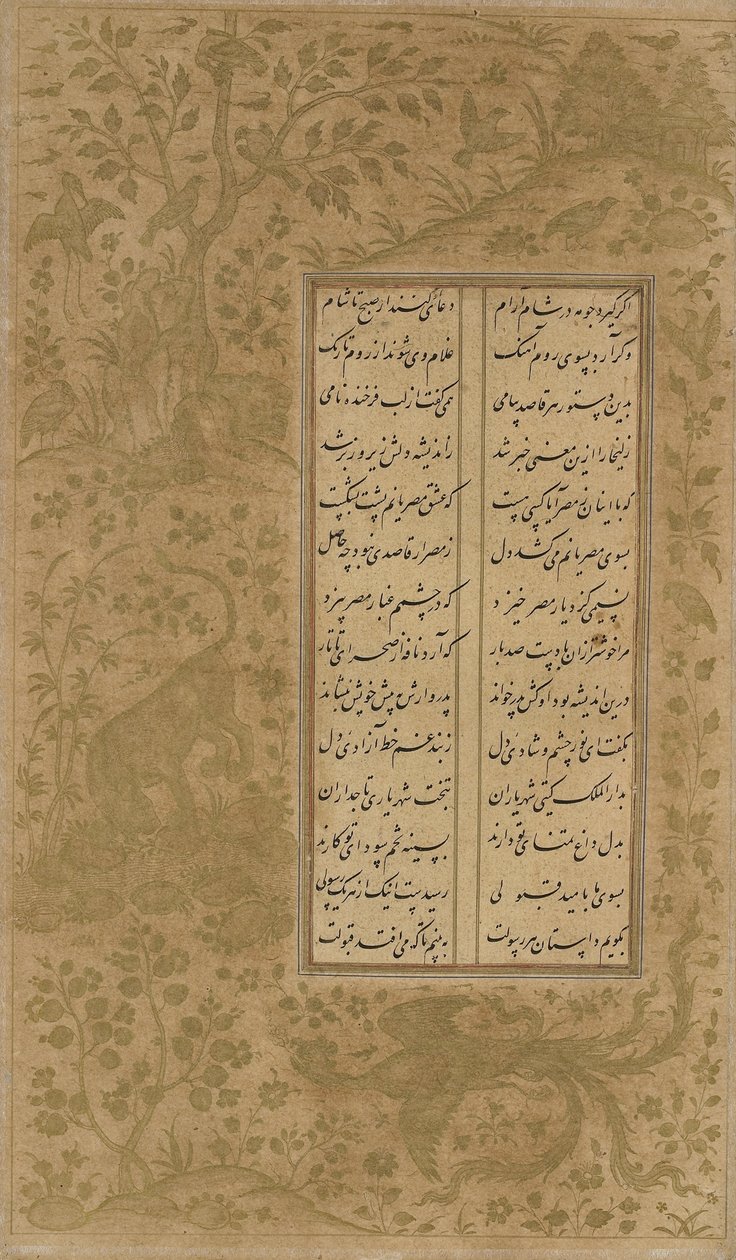 اگر گیرد چو مه در شام آرام دعای کنند از صبح تا شام
وگر آرد بسوی روم آهنگ غلام وی شوند از روم تا زنگ
بدین دستور هر قاصد پیامی همی گفت از لب فرخنده نامی
زلیخا را ازین معنی خبر شد ز اندیشه دلش زیر و زبر شد
که با اینان ز مصر آیا کسی هست که عشق مصریانم پشت بشکست
بسوی مصریانم می کشد دل ز مصر ار قاصدی نبود چه حاصل
نسیمی کز دیار مصر خیزد که در چشمم غبار مصر بیزد
مرا خوشتر ازان بادیست صد بار که آرد نافه از صحرای تاتار
درین اندیشه بود او کش پدر خواند پدروارش به پیش خویش بنشاند
بگفت ای نور چشم و شادی دل ز بند غم خط آزادی دل
بدار الملک گیتی شهریاران بتخت شهریاری تاجداران
بدل داغ تمنای تو دارند بسینه تخم سودای تو کارند
بسوی ما بامید قبولی رسیدست اینک از هر یک رسولی
بگویم داستان هر رسولت به بینم تا که می افتد قبولت